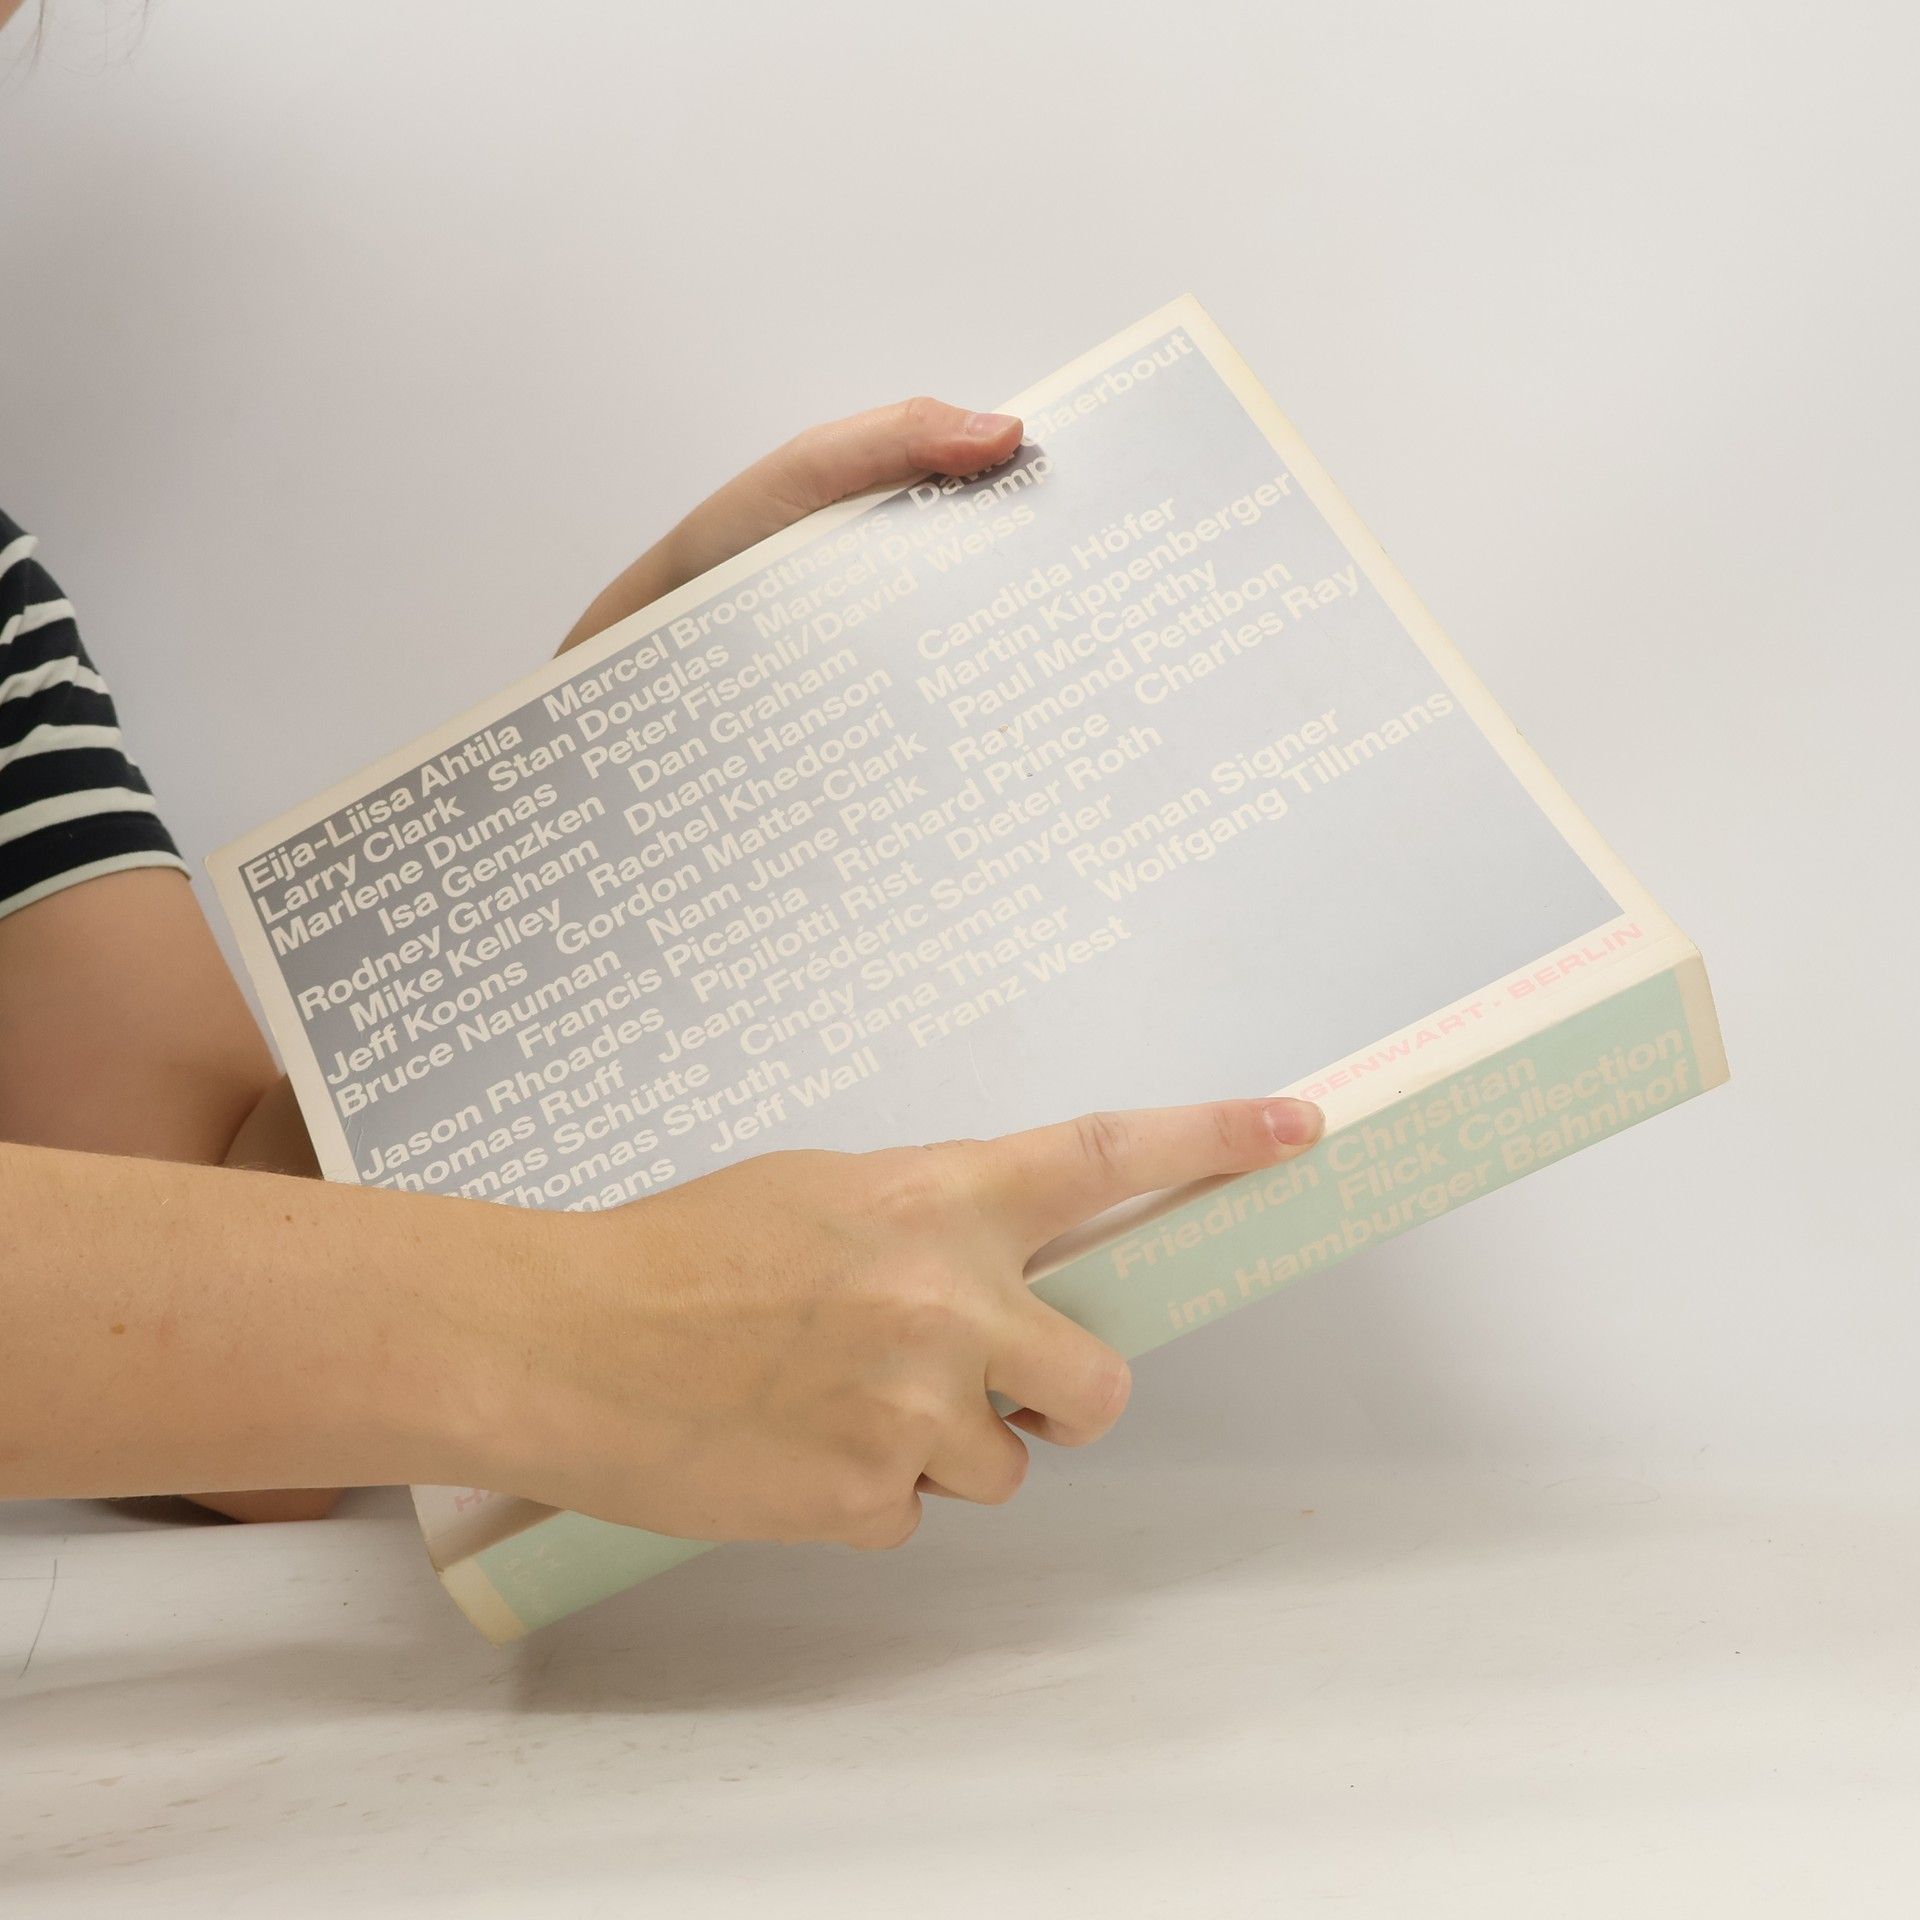 Eija-Liisa Ahtila Marcel Broodthaers David Claerbout
Larry Clark Stan Douglas Marcel Duchamp
Marlene Dumas Peter Fischli/David Weiss
Isa Genzken Dan Graham
Rodney Graham Duane Hanson Candida Höfer
Mike Kelley Rachel Khedoori Martin Kippenberger
Jeff Koons Gordon Matta-Clark Paul McCarthy
Bruce Nauman Nam June Paik Raymond Pettibon
Francis Picabia Richard Prince Charles Ray
Jason Rhoades Pipilotti Rist Dieter Roth
Thomas Ruff Jean-Frédéric Schnyder
mas Schütte Cindy Sherman Roman Signer
Thomas Struth Diana Thater Wolfgang Tillmans
mans Jeff Wall Franz West
GENWART - BERLIN
Friedrich Christian
Flick Collection
im Hamburger Bahnhof